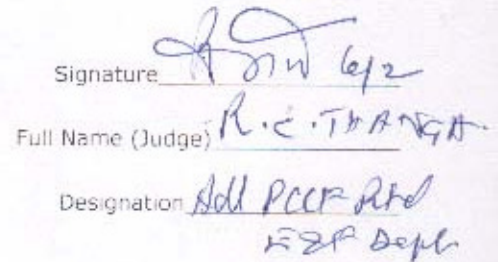 Signature 6/2
Full Name (Judge) R.C. THANGA.
Designation Addl PCCF Rtd
E&F Deptt